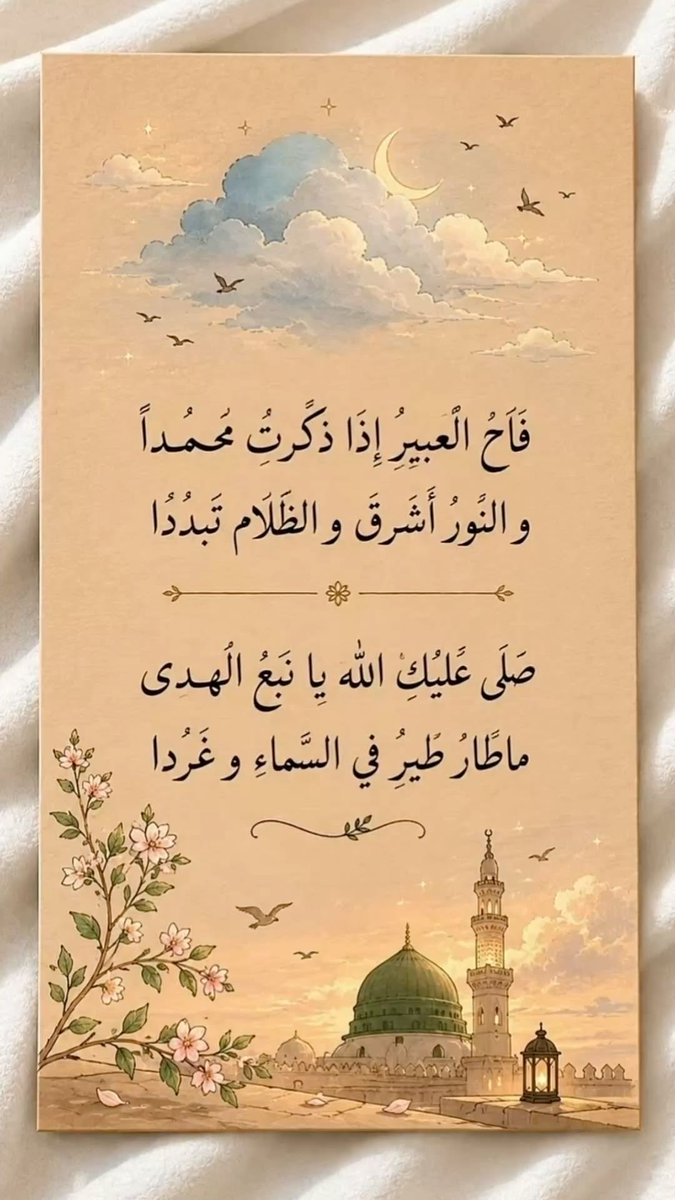 فَاَحُ الْعبيِرُ إِذَا ذكًرتُِ مُحمُداً
و النًورُ أَشَرقَ و الظَلَام تَبدُدُا
صَلَى عًليُكِْ الله يِا نَبَعُ الْهدِى
ماطًارُ طًيرُِ في السَّماءِ و غَرُدا